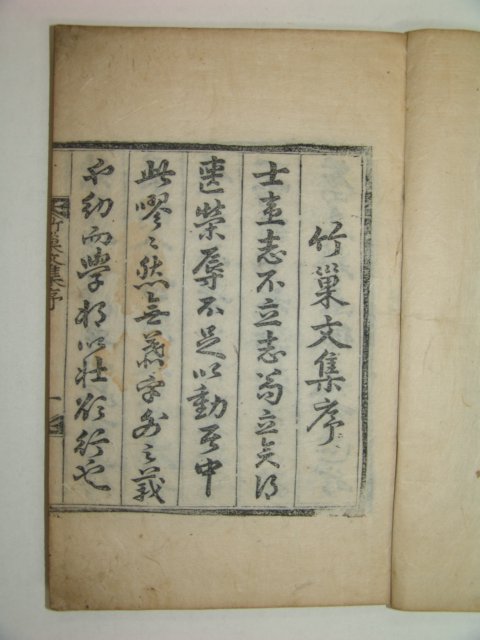 竹巢文集序
士患志不立志苟立矣得
喪榮辱不足以動其中
此嘐〻然無慕乎外之義
也幼而學將以壯欲行也
竹巢文集序 一